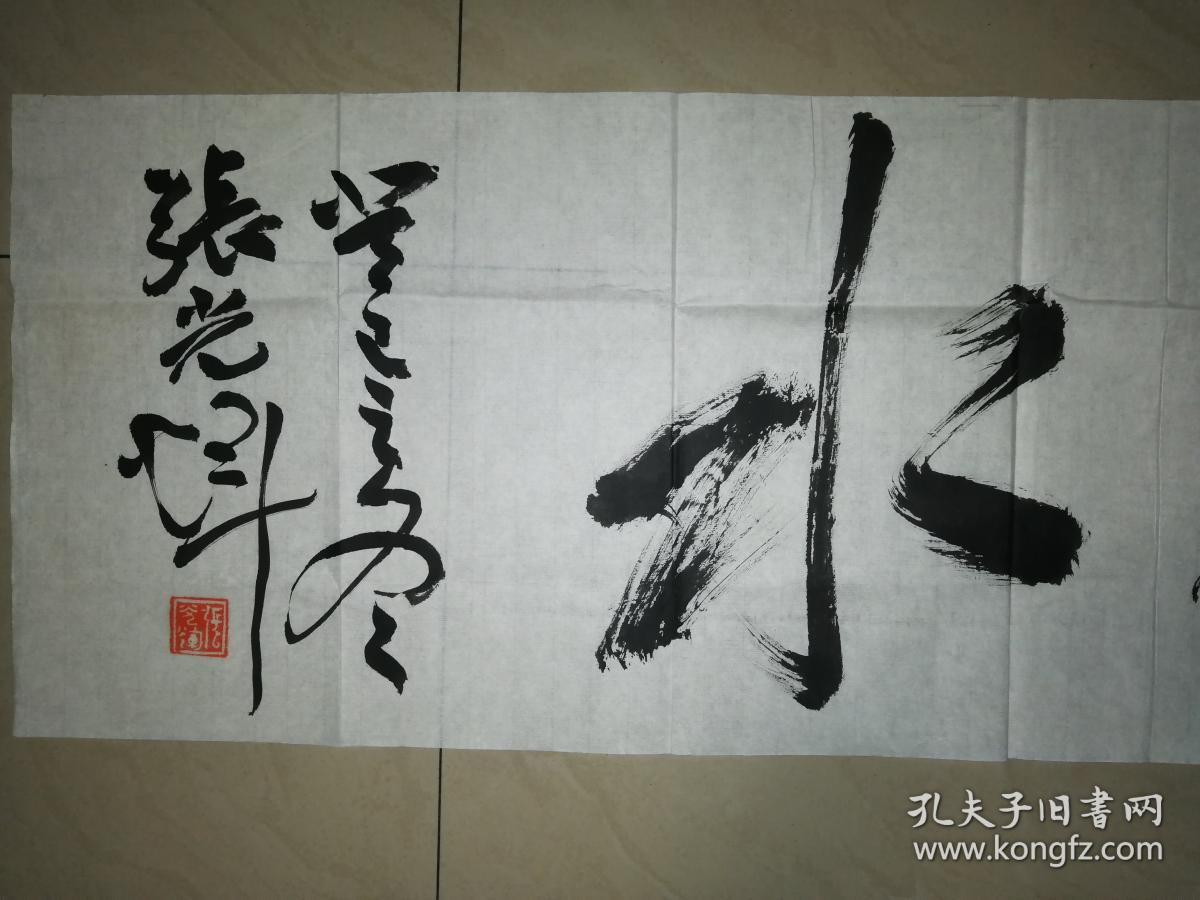 水
癸巳立冬
張光
孔夫子旧书网
www.kongfz.com